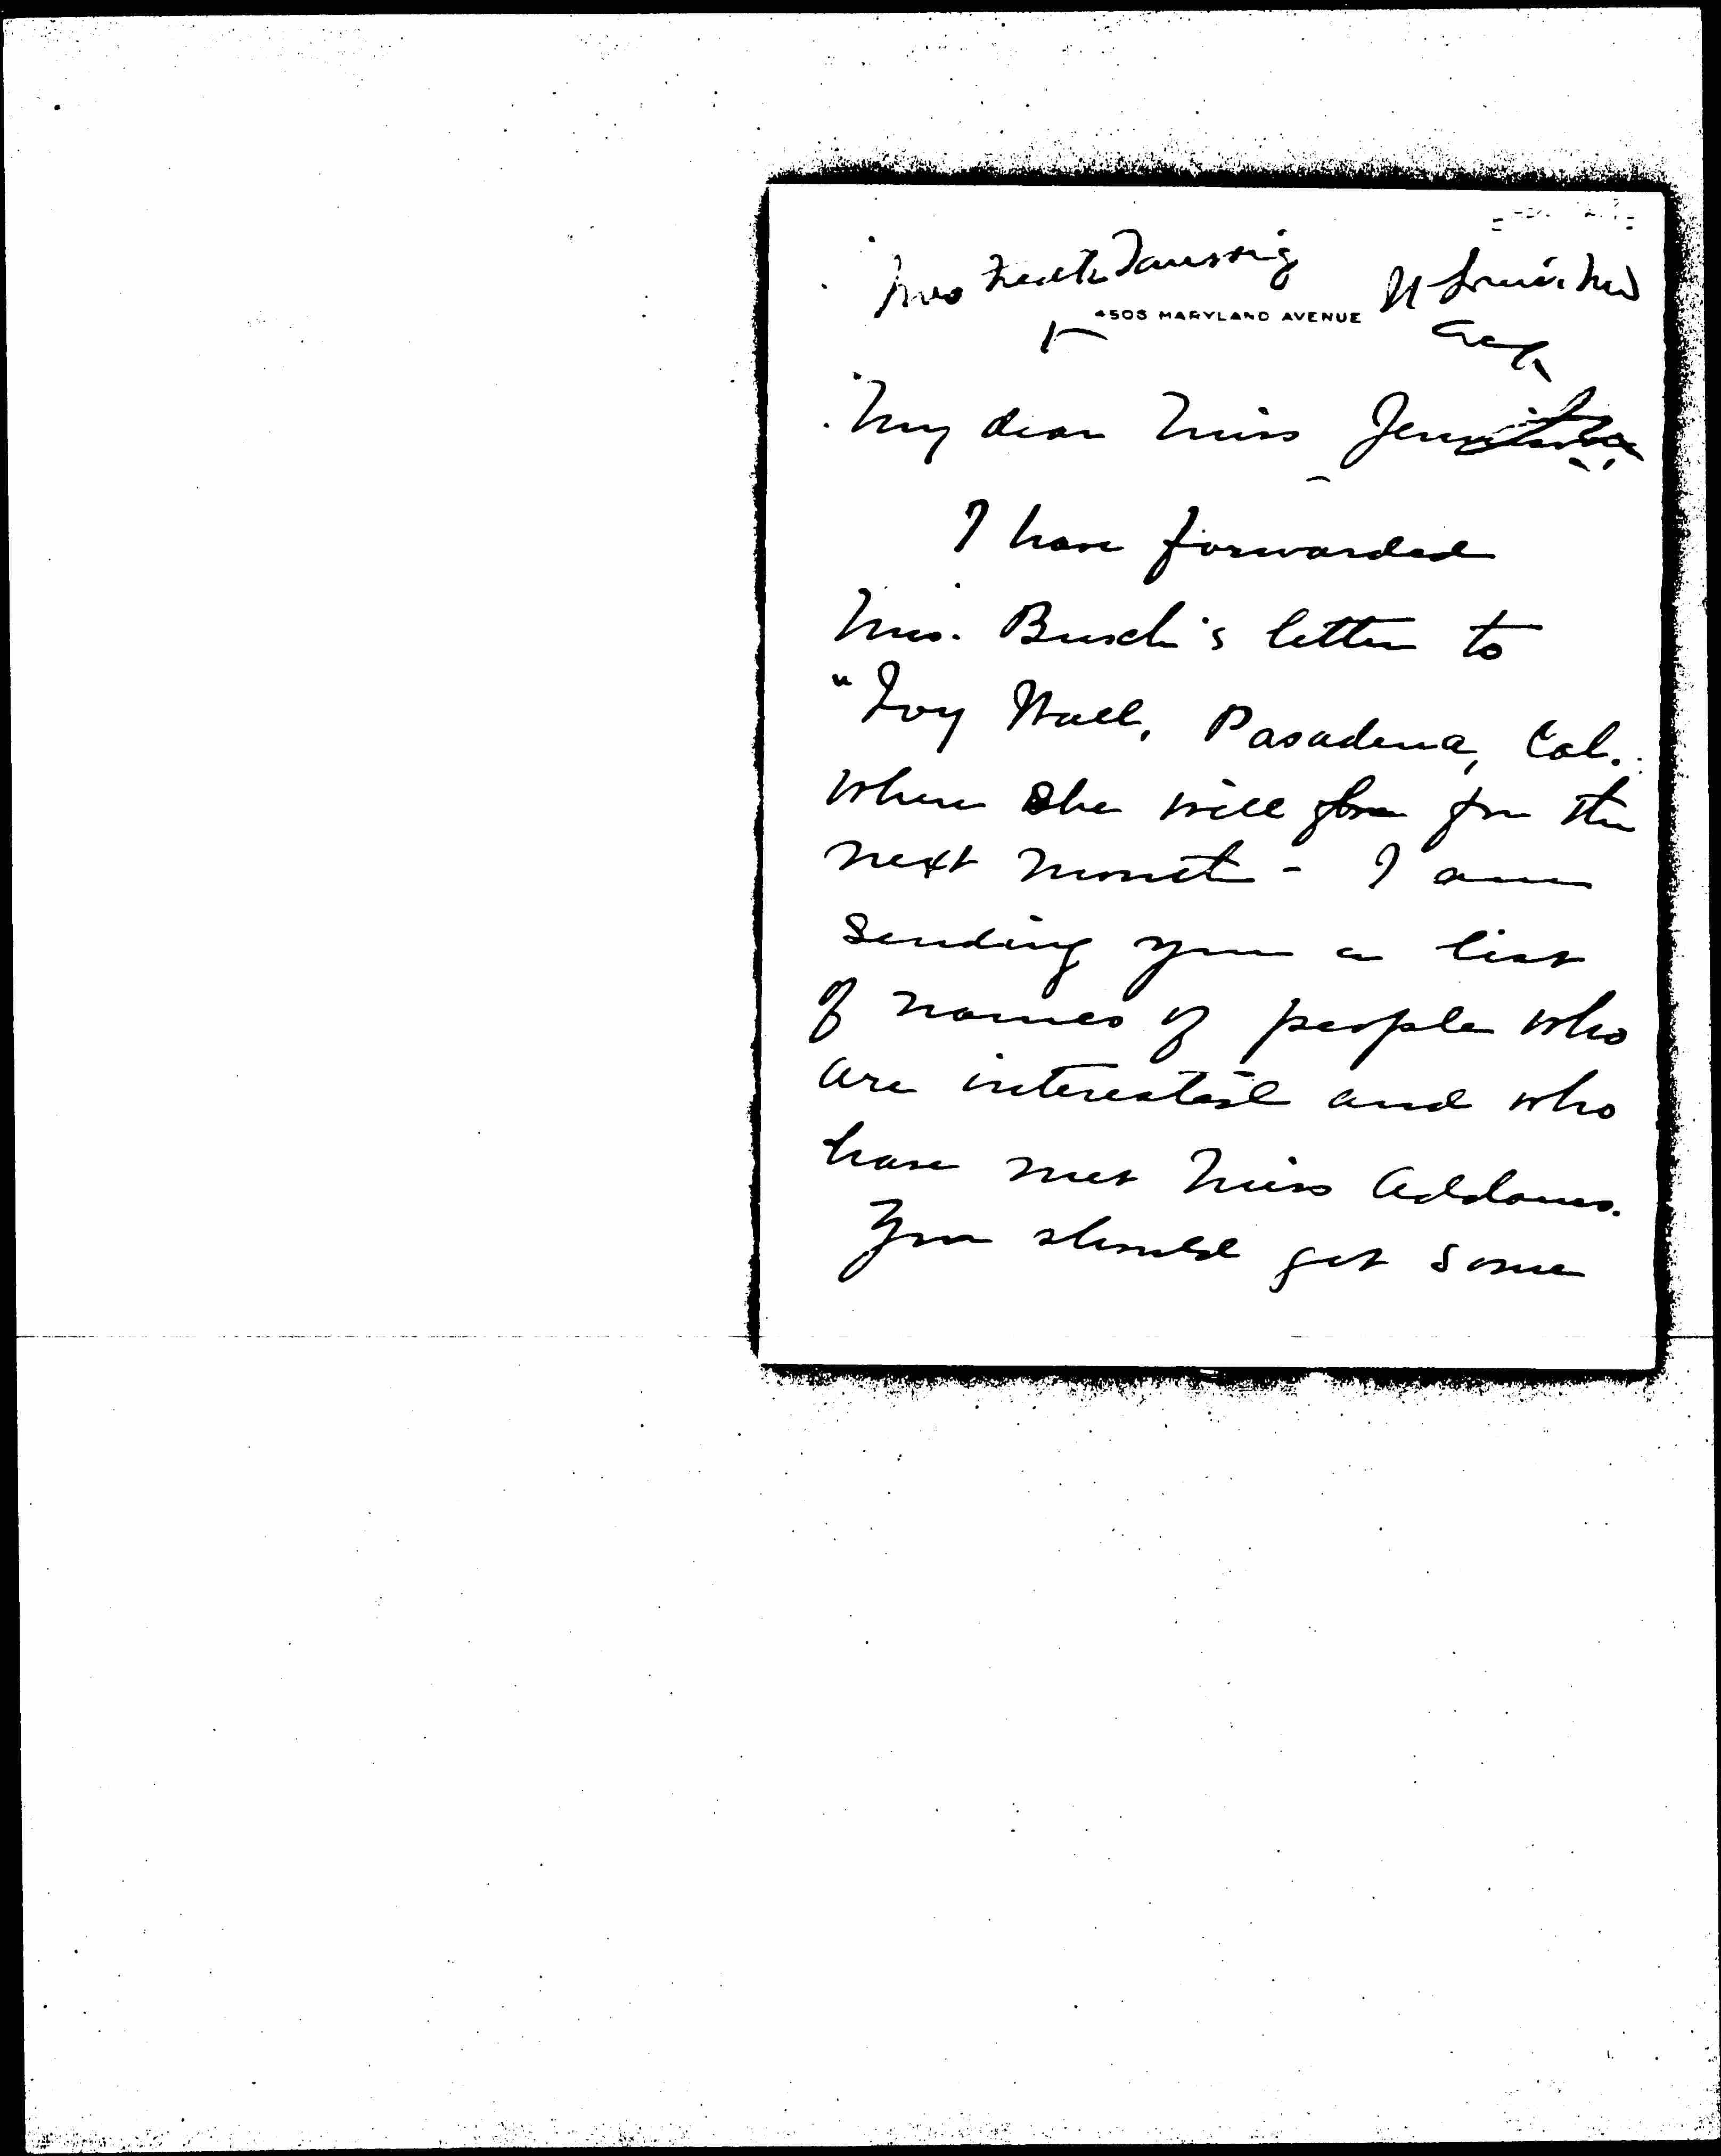 Mrs Fredk Taussig
St Louis Mo
4506 MARYLAND AVENUE
ack
My dear Miss
I have forwarded
Mrs. Busch's letter to
"Ivy Wall, Pasadena, Cal.
where she will be for the
next month - I am
sending you a list
of names of people who
are interested and who
have met Miss Addams.
You should get some